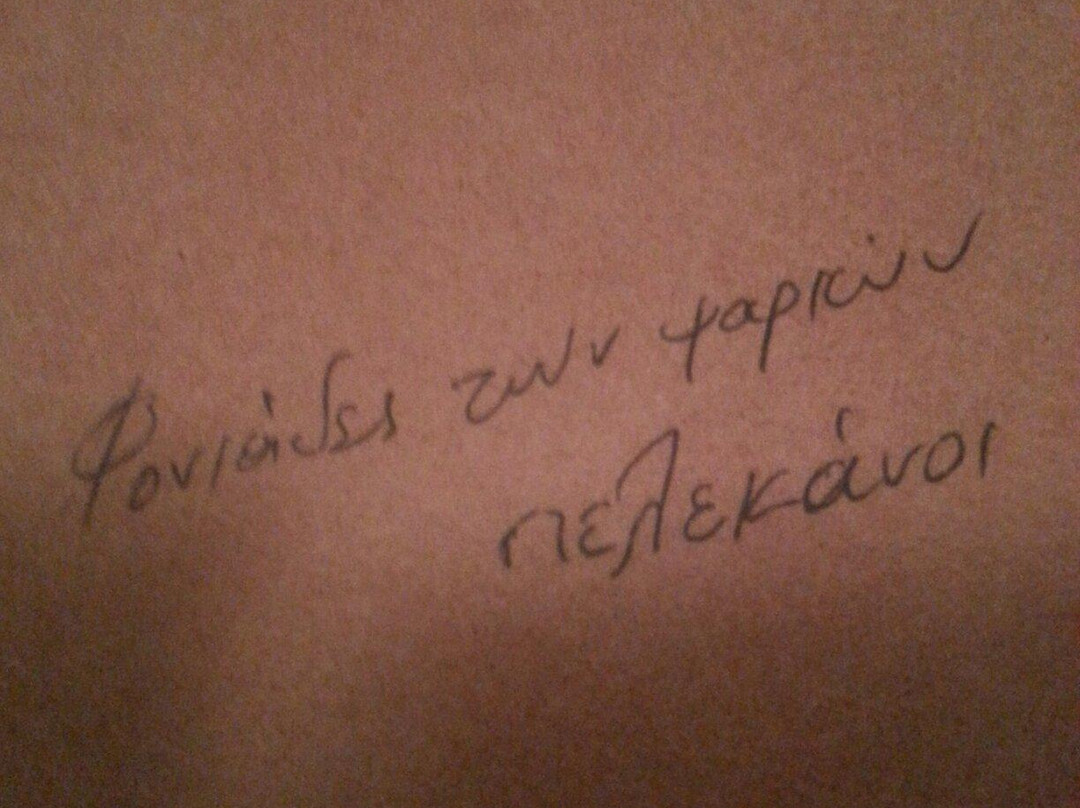 Φονιάδες των ψαριών
πελεκάνοι